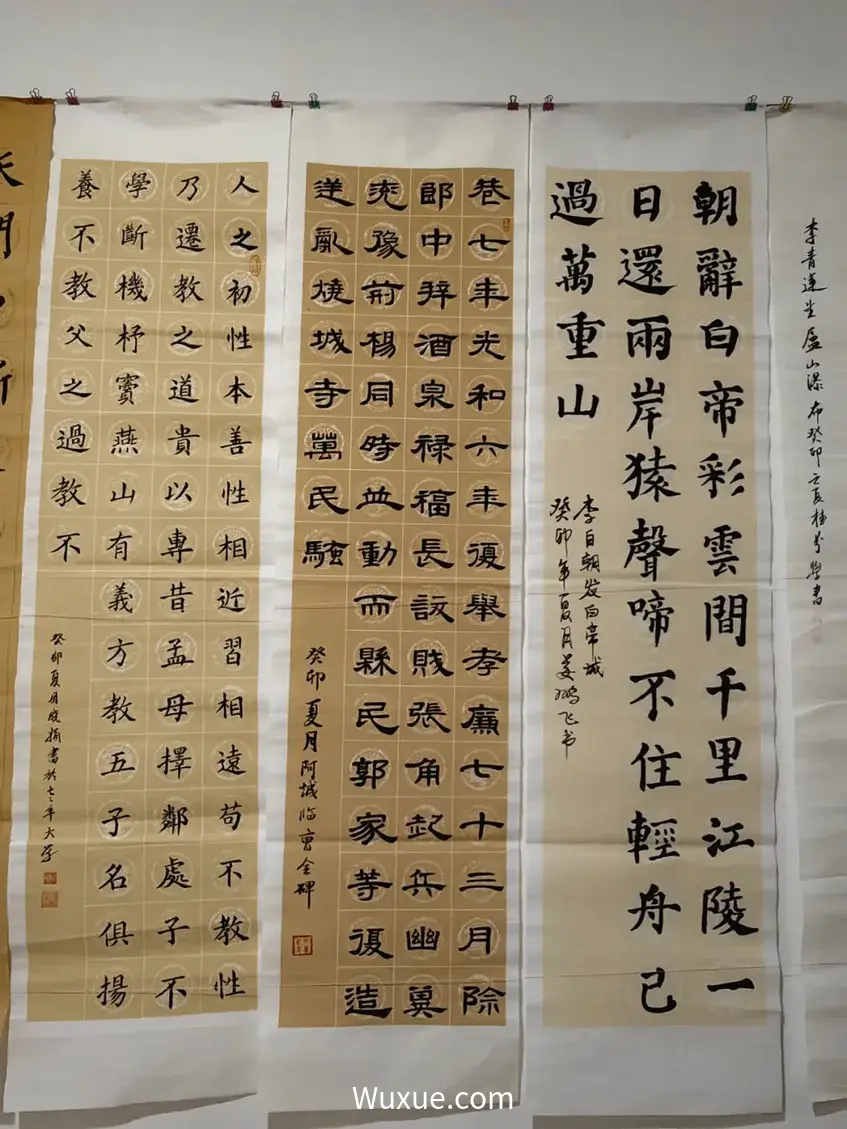 李青蓮望廬山瀑布癸卯夏學書
朝辭白帝彩雲間千里江陵一
日還兩岸猿聲啼不住輕舟已
過萬重山
李白朝发白帝城
癸卯年夏月姜鹏飞书
巷七年光和六年復舉孝廉七十三月除
郎中拜酒泉禄福長訞賊張角起兵幽冀
兖豫荊楊同時並動而縣民郭家等復造
逆亂燒城寺萬民騷
癸卯夏月阿城临曹全碑
人之初性本善性相近習相遠苟不教性
乃遷教之道貴以專昔孟母擇鄰處子不
學斷機杼竇燕山有義方教五子名俱揚
養不教父之過教不
癸卯夏月書於
Wuxue.com